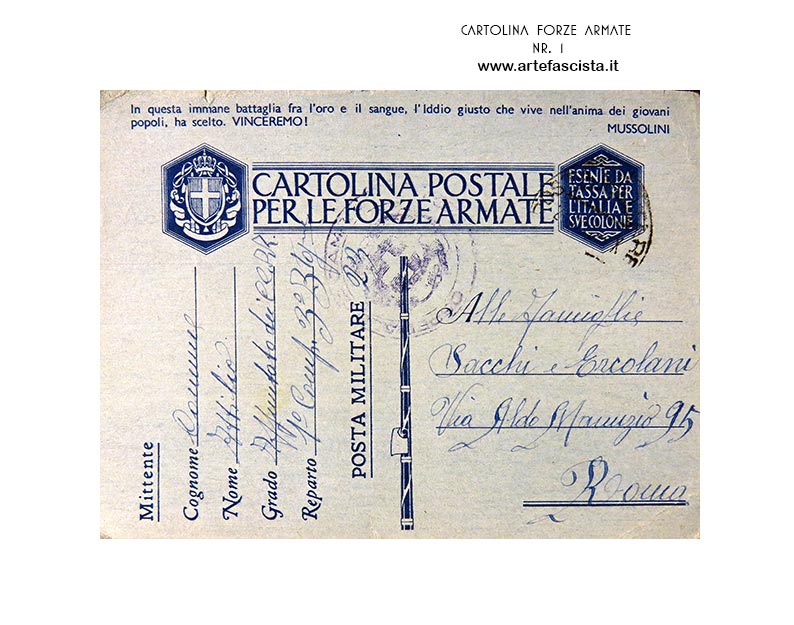 CARTOLINA FORZE ARMATE
NR. 1
www.artefascista.it
In questa immane battaglia fra l'oro e il sangue, l'Iddio giusto che vive nell'anima dei giovani
popoli, ha scelto. VINCEREMO!
MUSSOLINI
CARTOLINA POSTALE
PER LE FORZE ARMATE
ESENTE DA
TASSA PER
L'ITALIA E
SVE COLONIE
Mittente
Cognome
Nome Attilio
Grado
Reparto
POSTA MILITARE 22
Alle Famiglie
Sacchi e Ercolani
Via Aldo Manuzio 95
Roma